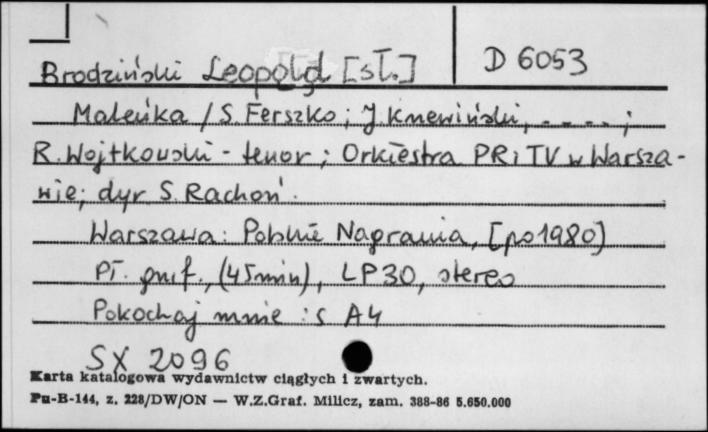 Brodziński Leopold [sł.]
D 6053
Maleńka / S. Ferszko ; J. Kmewiński, - - - - ;
R. Wojtkowski - tenor ; Orkiestra PR i TV w Warsza-
wie ; dyr S. Rachoń.
Warszawa : Polskie Nagrania, [po 1980]
Pł. gmf., (45 min), LP30, stereo
Pokochaj mnie : s A4
SX 2096
Karta katalogowa wydawnictw ciągłych i zwartych.
Pu-B-144, z. 228/DW/ON — W.Z.Graf. Milicz, zam. 388-86 5.650.000